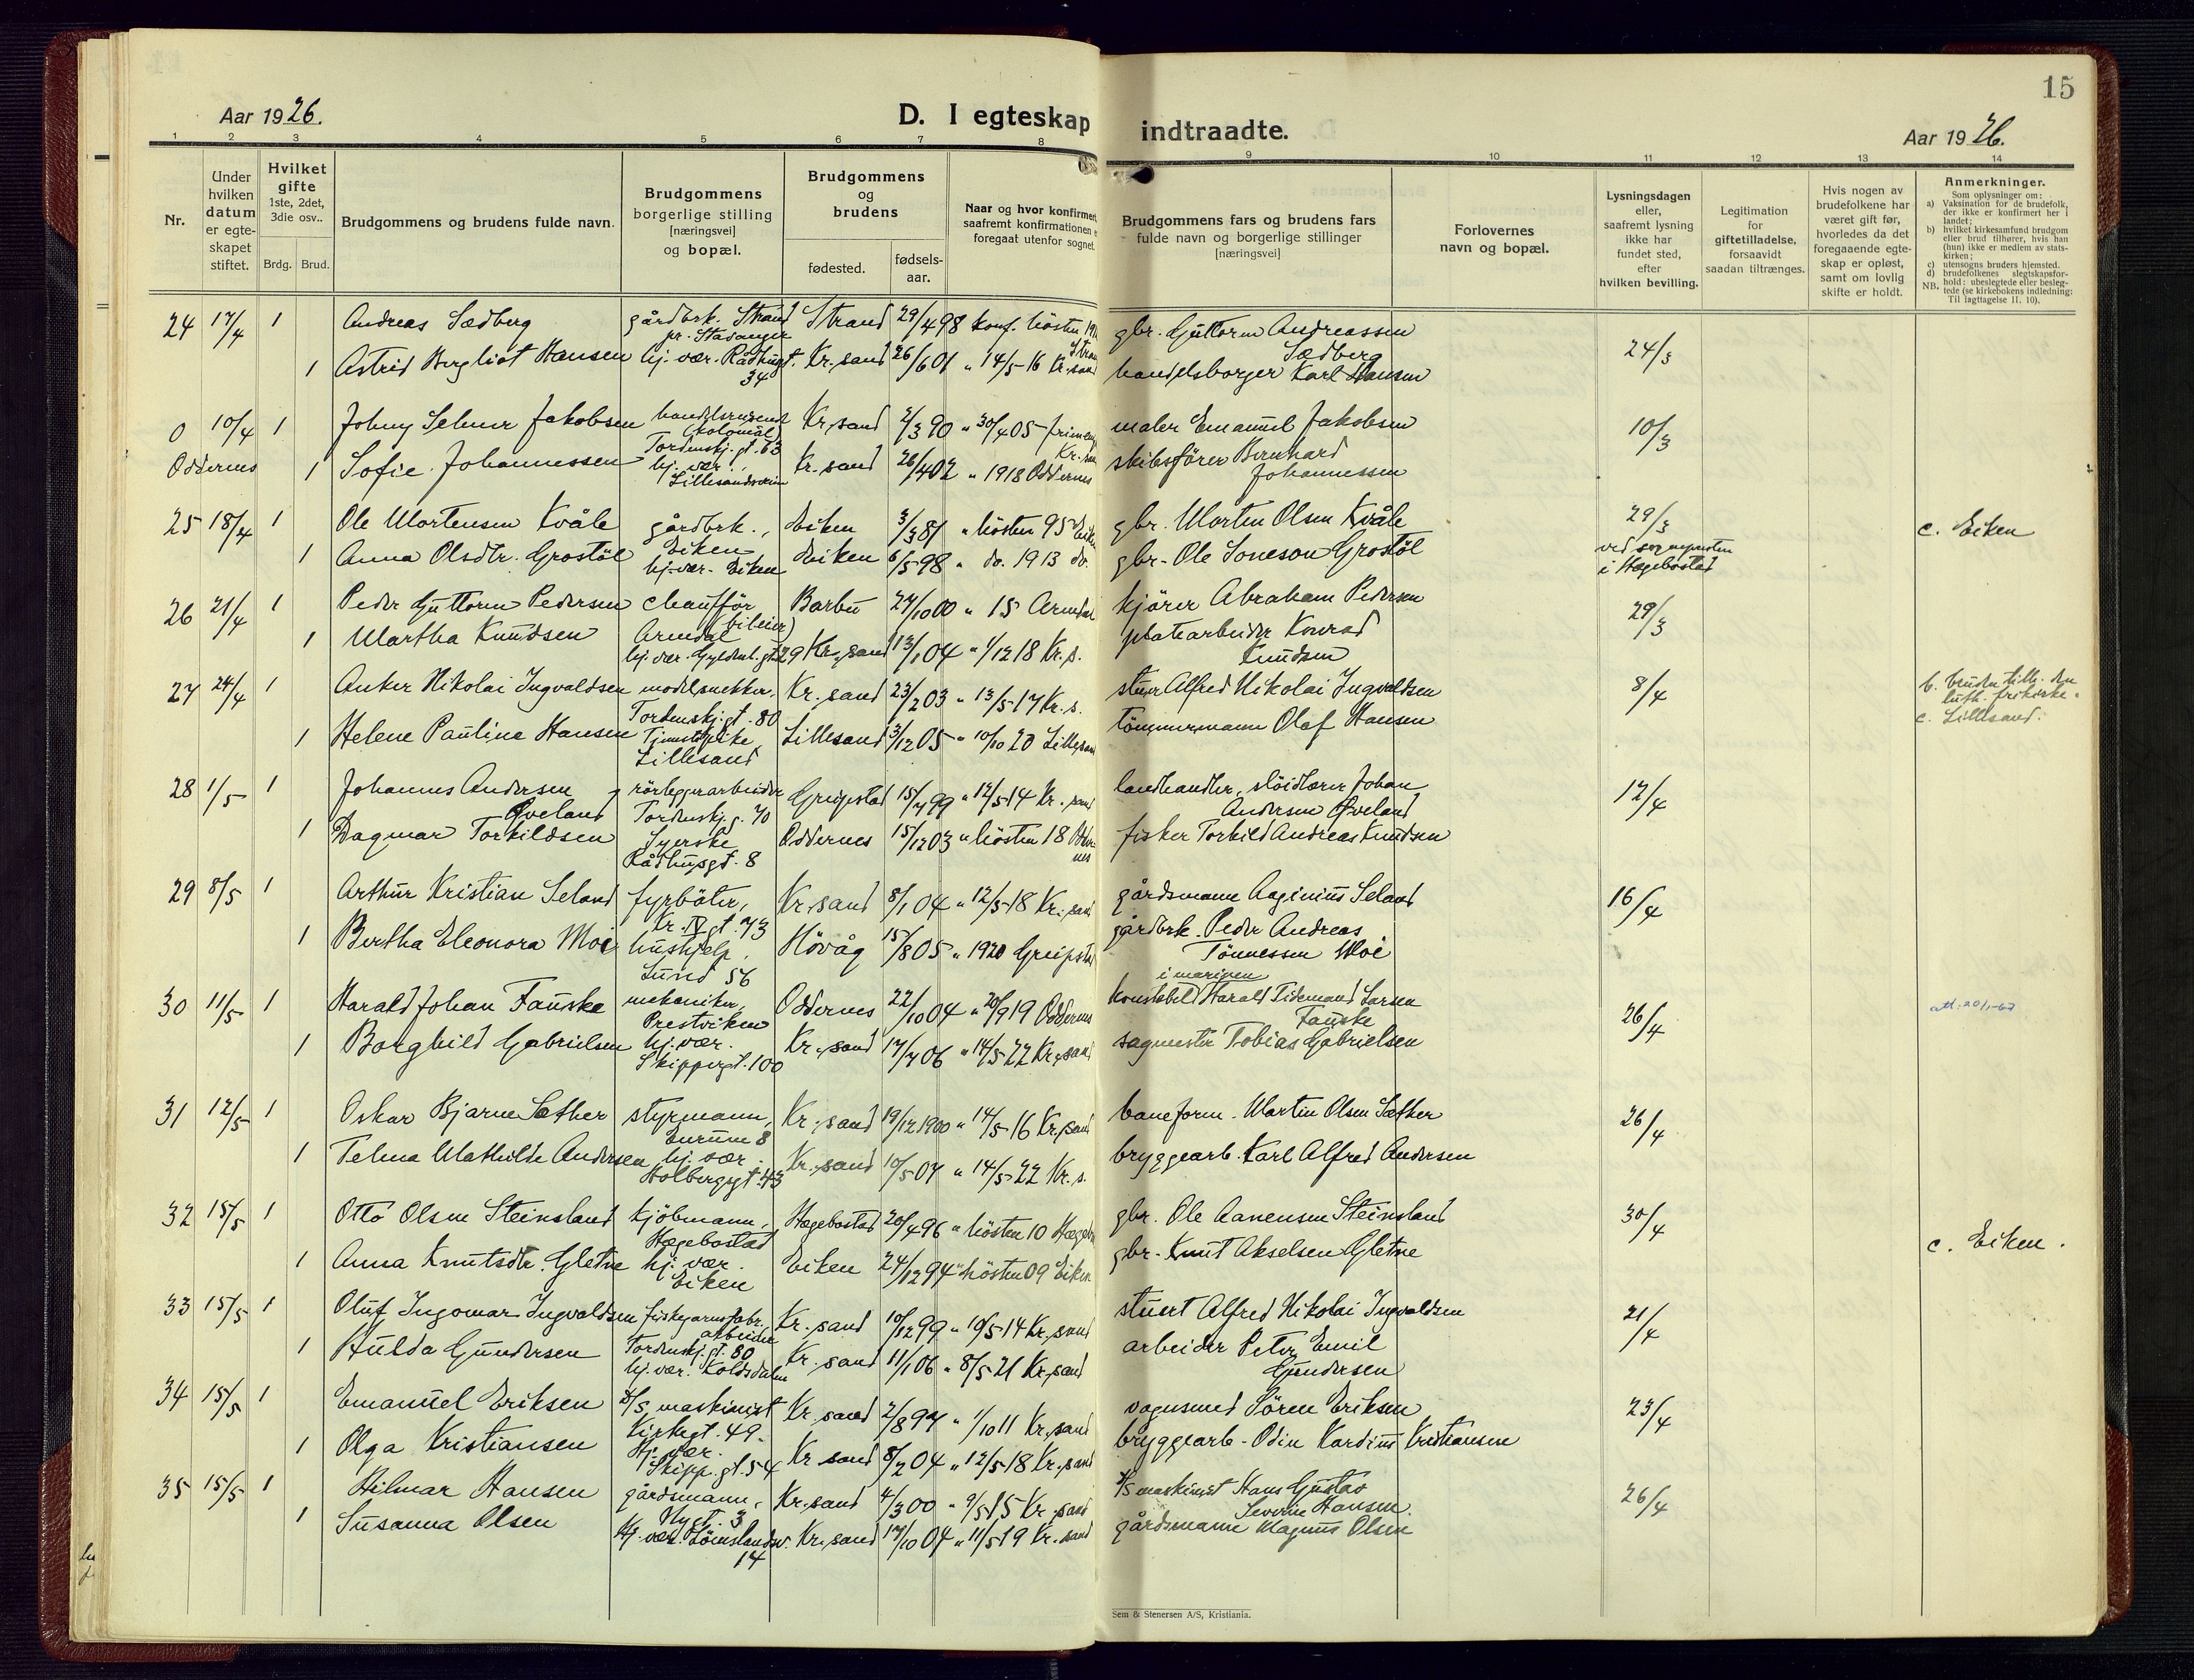 15
Aar 1926.
D. I egteskap indtraadte.
Aar 1926.
1 2 3 4 5 6 7 8 9 10 11 12 13 14
Nr.
Under hvilken datum er egteskapet stiftet.
Hvilket gifte 1ste, 2det, 3die osv..
Brdg. Brud.
Brudgommens og brudens fulde navn.
Brudgommens borgerlige stilling [næringsvei] og bopæl.
Brudgommens og brudens
fødested.
fødsels-aar.
Naar og hvor konfirmert
saafremt konfirmationen
foregaat utenfor sognet
Brudgommens fars og brudens fars fulde navn og borgerlige stillinger [næringsvei]
Forlovernes navn og bopæl.
Lysningsdagen eller, saafremt lysning ikke har fundet sted, efter hvilken bevilling.
Legitimation for giftetilladelse, forsaavidt saadan tiltrænges.
Hvis nogen av brudefolkene har været gift før, hvorledes da det foregaaende egteskap er opløst, samt om lovlig skifte er holdt.
Anmerkninger.
Som oplysninger om:
a) Vaksination for de brudefolk, der ikke er konfirmert her i landet;
b) hvilket kirkesamfund brudgom eller brud tilhører, hvis han (hun) ikke er medlem av statskirken;
c) utensogns bruders hjemsted.
d) brudefolkenes slegtskapsforhold: ubeslegtede eller beslegtede (se kirkebokens indledning: Til iagttagelse II. 10).
NB.
24 17/4 1 Andreas Sædberg gårdbrk. Strand pr. Stavanger Strand 29/4 98 konf. hösten gbr. Guttorm Andreassen Sædberg 24/3
1 Astrid Bergliot Hansen hj. vær. Rådhusgt. 34 Kr.sand 26/6 01 " 14/5-16 Kr.sand handelsborger Karl Hansen
0 Oddernes 10/4 1 Johny Selmer Jakobsen handelsreisende (kolonial) Tordenskj.gt. 63 Kr.sand 2/3 90 " 30/4 05 maler Emanuel Jakobsen 10/3
1 Sofie Johannessen hj. vær. Lillesandsveien Kr.sand 26/4 02 " 1918 Oddernes skibsfører Bernhard Johannessen
25 18/4 1 Ole Mortensen Kvåle gårdbrk., Eiken Eiken 3/3 81 " hösten 95 Eiken gbr. Morten Olsen Kvåle 29/3 ved sogneprsten i Hægebostad c. Eiken
1 Anna Olsdtr. Grostöl hj. vær. Eiken Eiken 6/5 98 " do. 1913 do. gbr. Ole Soneson Grostöl
26 21/4 1 Peder Guttorm Pedersen chaufför (bileier) Arendal Barbu 24/10 00 " 15 Arendal kjörer Abraham Pedersen 29/3
1 Martha Knudsen hj. vær. Gyldenl.gt. 29 Kr.sand 13/1 04 " 1/12 18 Kr.s. platearbeider Konrad Knudsen
27 24/4 1 Anker Nikolai Ingvaldsen modelsnekker, Tordenskj.gt. 80 Kr.sand 23/2 03 " 13/5-17 Kr.s. Alfred Nikolai Ingvaldsen 8/4 b. bruden tilh. den luth. frikirke. c. Lillesand.
1 Helene Pauline Hansen Tjenestepike Lillesand Lillesand 3/12 05 " 10/10 20 Lillesand tömmermann Olaf Hansen
28 1/5 1 Johannes Andersen Öveland rörleggerarbeider Tordenskj.g. 70 Greipstad 15/7 99 " 12/5-14 Kr.sand landhandler, slöidlærer Johan Andersen Öveland 17/4
1 Dagmar Torkildsen Syerske Rådhusgt. 8 Oddernes 15/12 03 " hösten 18 Oddernes fisker Torkild Andreas Knudsen
29 8/5 1 Arthur Kristian Seland fyrböter, Kr. IV gt. 73 Kr.sand 8/1 04 " 12/5-18 Kr.sand gårdsmann Aaginius Seland 16/4
1 Bertha Eleonora Moi hushjelp, Lund 56 Hövåg 15/8 05 " 1920 Greipstad gårdbrk. Peder Andreas Tönnessen Moi
30 11/5 1 Harald Johan Fauske mekaniker, Prestviken Oddernes 22/10 04 " 20/9 19 Oddernes konstabel i marinen Harald Tidemand Larsen Fauske 26/4 att. 20/1-67
1 Borghild Gabrielsen hj. vær. Skippergt. 100 Kr.sand 17/7 06 " 14/5-22 Kr.sand sagmester Tobias Gabrielsen
31 12/5 1 Oskar Bjarne Sæther styrmann, Kr.sand 19/12 1900 " 14/5-16 Kr.sand baneform. Martin Olsen Sæther 26/4
1 Telma Mathilde Andersen hj. vær. Holbergsgt. 43 Kr.sand 10/5 07 " 14/5-22 Kr.s. bryggearb. Karl Alfred Andersen
32 15/5 1 Otto Olsen Steinsland kjöbmann, Hægebostad Hægebostad 20/4 96 " hösten 10 gbr. Ole Aanensen Steinsland 30/4 c. Eiken.
1 Anna Knutsdtr. Gletne hj. vær. Eiken Eiken 24/12 94 " hösten 09 Eiken gbr. Knut Akselsen Gletne
33 15/5 1 Oluf Ingomar Ingvaldsen fiskegarnsfabr. arbeider Tordenskj.gt. 80 Kr.sand 10/12 99 " 10/5-14 Kr.sand stuert Alfred Nikolai Ingvaldsen 21/4
1 Hulda Gundersen hj. vær. Koldsdalen Kr.sand 11/1 06 " 8/5-21 Kr.sand arbeider Peter Emil Gundersen
34 15/5 1 Emanuel Eriksen D/S maskinist Kirkegt. 49. Kr.sand 2/8 94 " 1/10 11 Kr.sand vognsmed Sören Eriksen 23/4
1 Olga Kristiansen Hj. vær. Skipp.gt. 54 Kr.sand 8/2 04 " 12/5-18 Kr.sand bryggearb. Odin Kardius Kristiansen
35 15/5 1 Hilmar Hansen gårdsmann, Nygt. 3 Kr.sand 4/3 00 " 9/5 15 Kr.sand D/S maskinist Hans Gustav Severin Hansen 26/4
1 Susanna Olsen Hj. vær. 14 Kr.sand 17/10 04 " 11/5 19 Kr.sand gårdsmann Magnus Olsen
Sem & Stenersen A/S, Kristiania.